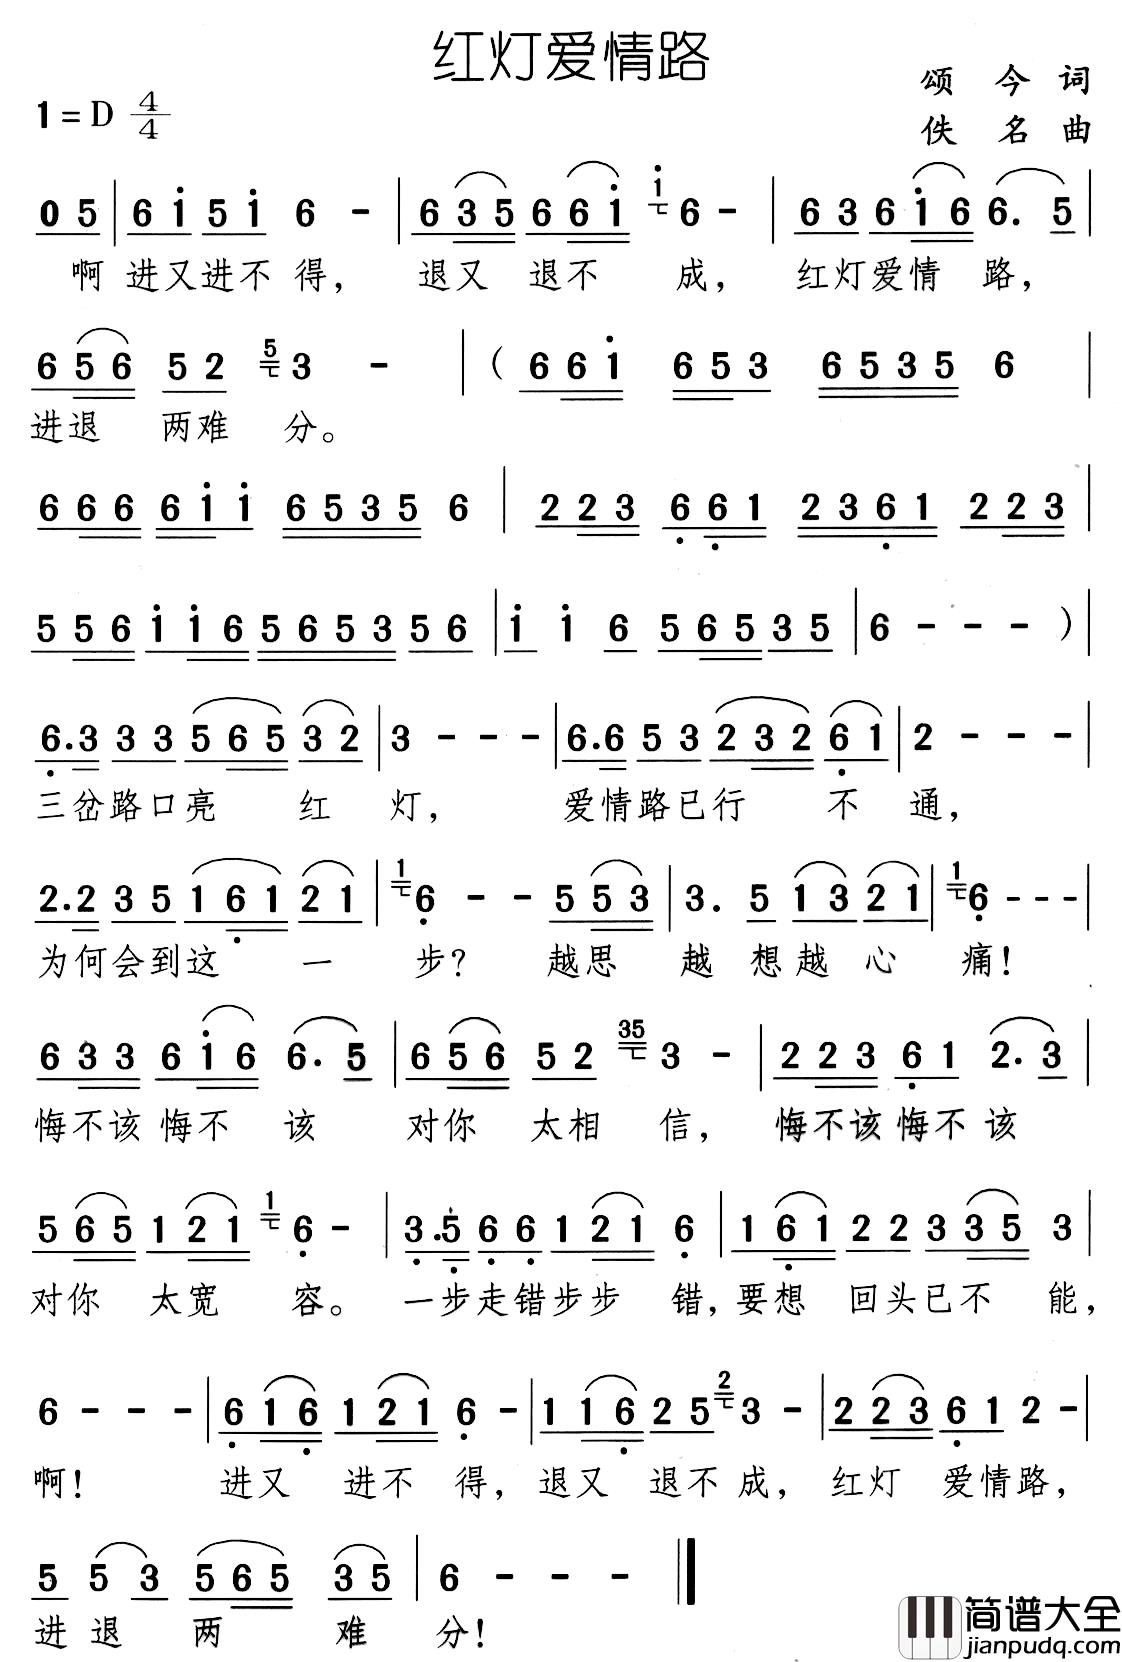 红灯爱情路
颂 今 词
1=D 4/4
佚 名 曲
0 5 | 6 i 5 i 6 - | 6 3 5 6 6 i i 6 - | 6 3 6 i 6 6. 5 |
啊 进又进不 得， 退又 退不 成， 红灯爱情 路，
6 5 6 5 2 5 3 - | ( 6 6 i 6 5 3 6 5 3 5 6 |
进退 两难 分。
6 6 6 6 i i 6 5 3 5 6 | 2 2 3 6 6 1 2 3 6 1 2 2 3 |
5 5 6 i i 6 5 6 5 3 5 6 | i i 6 5 6 5 3 5 | 6 - - - ) |
6. 3 3 3 5 6 5 3 2 | 3 - - - | 6. 6 5 3 2 3 2 6 1 | 2 - - - |
三岔路口亮 红 灯， 爱情路已行 不 通，
2. 2 3 5 1 6 1 2 1 | 1 6 - - 5 5 3 | 3. 5 1 3 2 1 | 1 6 - - - |
为何会到这 一 步? 越思 越 想越 心 痛!
6 3 3 6 i 6 6. 5 | 6 5 6 5 2 35 3 - | 2 2 3 6 1 2. 3 |
悔不该悔不 该 对你 太相 信， 悔不该悔不该
5 6 5 1 2 1 1 6 - | 3. 5 6 6 1 2 1 6 | 1 6 1 2 2 3 3 5 3 |
对你 太宽 容。 一步走错步步 错，要想 回头已不 能，
6 - - - | 6 1 6 1 2 1 6 - | 1 1 6 2 5 2 3 - | 2 2 3 6 1 2 - |
啊! 进又 进不 得，退又 退不成， 红灯 爱情路，
5 5 3 5 6 5 3 5 | 6 - - - ‖
进 退 两 难 分!
简谱大全
jianpudq.com